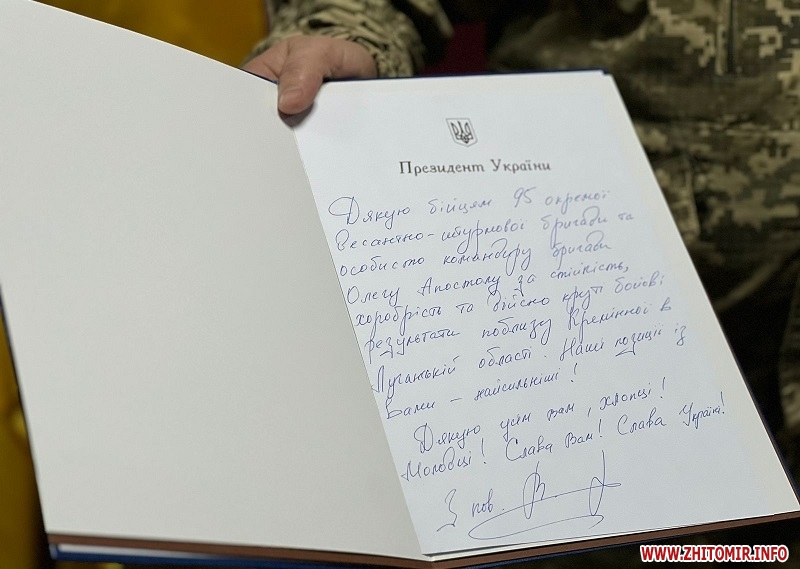 Президент України
Дякую бійцям 95 окремої
десантно-штурмової бригади та
особисто командиру бригади
Олегу Апостолу за стійкість,
хоробрість та дійсно круті бойові
результати поблизу Кремінної в
Луганській області. Наші позиції із
Вами – найсильніші!
Дякую усім вам, хлопці!
Молодці! Слава Вам! Слава Україні!
З пов.
WWW.ZHITOMIR.INFO